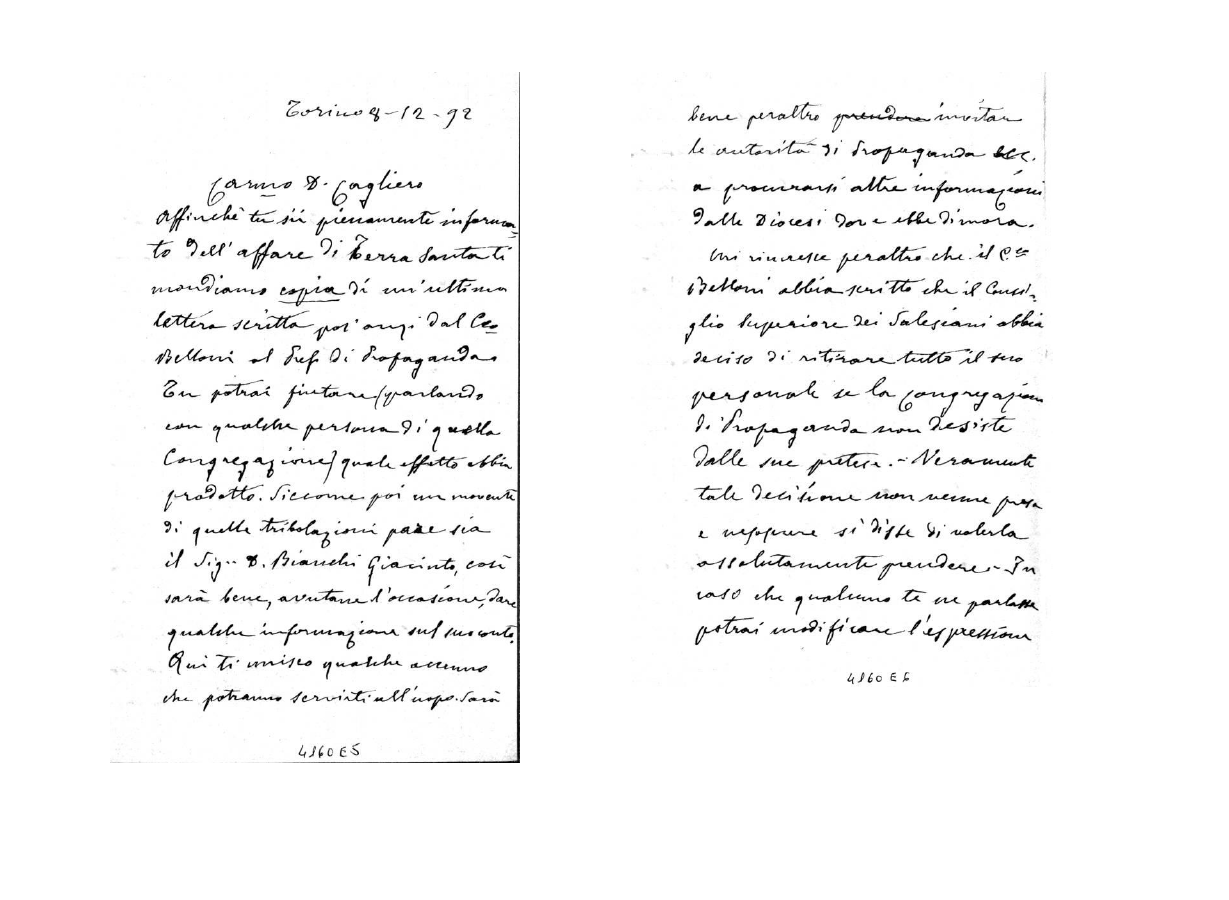 Torino 8-12-92
Carmo D. Cagliero
Affinchè tu sii pienamente informa-
to dell'affare di Terra Santa ti
mandiamo copia di un'ultima
lettera scritta poc'anzi dal Cco
Belloni al Pref. di Propaganda
Tu potrai fiutare (parlando
con qualche persona di quella
Congregazione) quale effetto abbia
prodotto. Siccome poi un movente
di quelle tribolazioni pare sia
il Sigr. D. Bianchi Giacinto, così
sarà bene, avutane l'occasione, dare
qualche informazione sul suo conto.
Qui ti unisco qualche accenno
che potranno servirti all'uopo. Sarà
4860 E5
bene peraltro prendere invitare
le autorità di Propaganda
a procurarsi altre informazioni
dalle Diocesi dove ebbe dimora.
Mi rincresce peraltro che il Cco
Belloni abbia scritto che il Consi-
glio Superiore dei Salesiani abbia
deciso di ritirare tutto il suo
personale se la Congregazione
di Propaganda non desiste
dalle sue pretese. - Veramente
tale decisione non venne presa
e neppure si disse di volerla
assolutamente prendere. - In
caso che qualcuno te ne parlasse
potrai modificare l'espressione
4860 E6